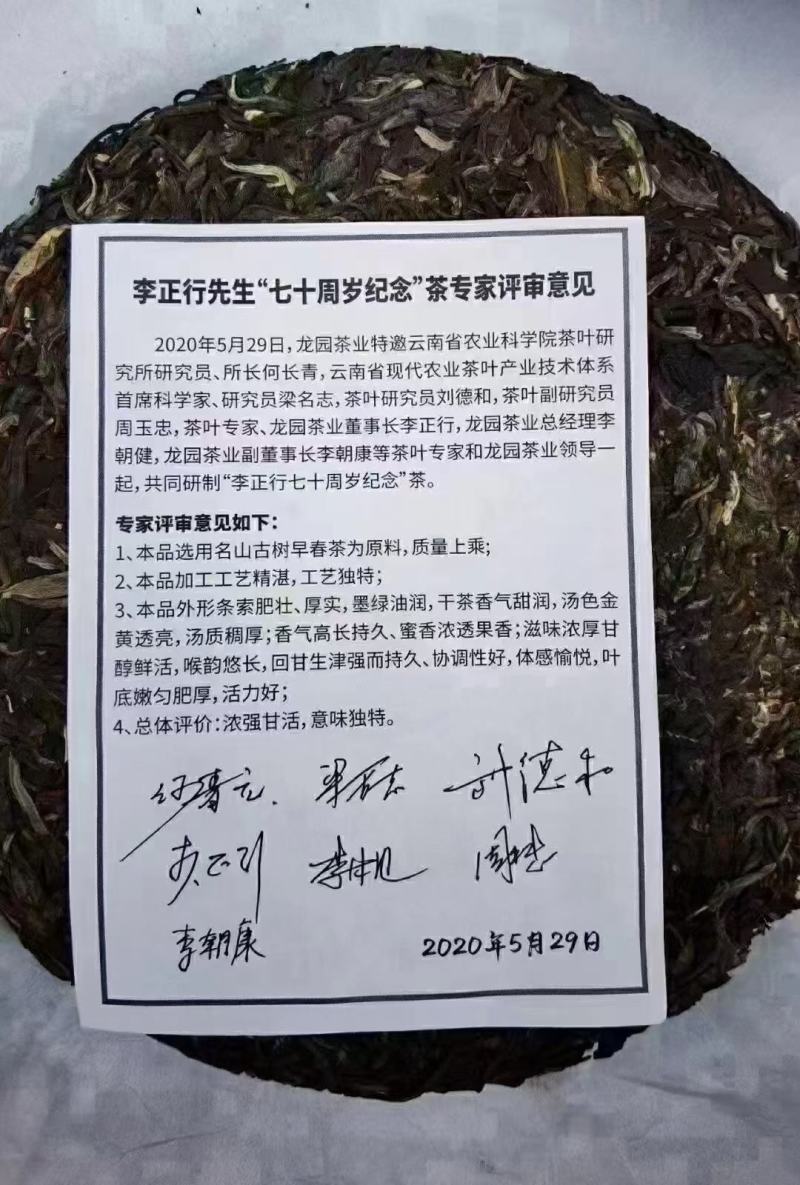 李正行先生“七十周岁纪念”茶专家评审意见
2020年5月29日，龙园茶业特邀云南省农业科学院茶叶研
究所研究员、所长何长青，云南省现代农业茶叶产业技术体系
首席科学家、研究员梁名志，茶叶研究员刘德和，茶叶副研究员
周玉忠，茶叶专家、龙园茶业董事长李正行，龙园茶业总经理李
朝健，龙园茶业副董事长李朝康等茶叶专家和龙园茶业领导一
起，共同研制“李正行七十周岁纪念”茶。
专家评审意见如下：
1、本品选用名山古树早春茶为原料，质量上乘；
2、本品加工工艺精湛，工艺独特；
3、本品外形条索肥壮、厚实，墨绿油润，干茶香气甜润，汤色金
黄透亮，汤质稠厚；香气高长持久、蜜香浓透果香；滋味浓厚甘
醇鲜活，喉韵悠长，回甘生津强而持久、协调性好，体感愉悦，叶
底嫩匀肥厚，活力好；
4、总体评价：浓强甘活，意味独特。
梁名志 刘德和
李正行
李朝康 2020年5月29日